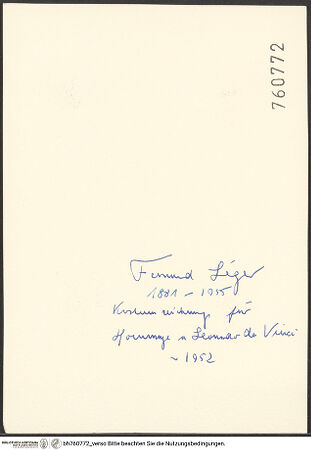 760772
Fernand Léger
1881 - 1955
Kostümzeichnung für
Hommage a Leonardo da Vinci
~ 1952
bh760772_verso Bitte beachten Sie die Nutzungsbedingungen.